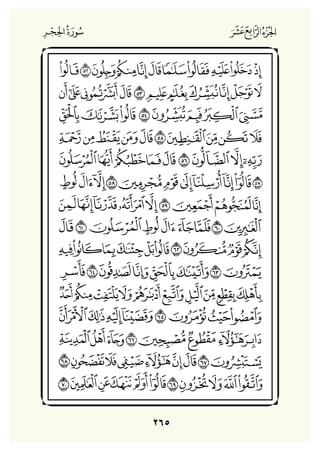 الجزء الرابع عشر
سورة الحجر
إِذْ دَخَلُوا۟ عَلَيْهِ فَقَالُوا۟ سَلَـٰمًا قَالَ إِنَّا مِنكُمْ وَجِلُونَ ۝٥٢ قَالُوا۟
لَا تَوْجَلْ إِنَّا نُبَشِّرُكَ بِغُلَـٰمٍ عَلِيمٍ ۝٥٣ قَالَ أَبَشَّرْتُمُونِى عَلَىٰٓ أَن
مَّسَّنِىَ ٱلْكِبَرُ فَبِمَ تُبَشِّرُونَ ۝٥٤ قَالُوا۟ بَشَّرْنَـٰكَ بِٱلْحَقِّ
فَلَا تَكُن مِّنَ ٱلْقَـٰنِطِينَ ۝٥٥ قَالَ وَمَن يَقْنَطُ مِن رَّحْمَةِ
رَبِّهِۦٓ إِلَّا ٱلضَّآلُّونَ ۝٥٦ قَالَ فَمَا خَطْبُكُمْ أَيُّهَا ٱلْمُرْسَلُونَ
۝٥٧ قَالُوٓا۟ إِنَّآ أُرْسِلْنَآ إِلَىٰ قَوْمٍ مُّجْرِمِينَ ۝٥٨ إِلَّآ ءَالَ لُوطٍ
إِنَّا لَمُنَجُّوهُمْ أَجْمَعِينَ ۝٥٩ إِلَّا ٱمْرَأَتَهُۥ قَدَّرْنَآ إِنَّهَا لَمِنَ
ٱلْغَـٰبِرِينَ ۝٦٠ فَلَمَّا جَآءَ ءَالَ لُوطٍ ٱلْمُرْسَلُونَ ۝٦١ قَالَ
إِنَّكُمْ قَوْمٌ مُّنكَرُونَ ۝٦٢ قَالُوا۟ بَلْ جِئْنَـٰكَ بِمَا كَانُوا۟ فِيهِ
يَمْتَرُونَ ۝٦٣ وَأَتَيْنَـٰكَ بِٱلْحَقِّ وَإِنَّا لَصَـٰدِقُونَ ۝٦٤ فَأَسْرِ
بِأَهْلِكَ بِقِطْعٍ مِّنَ ٱلَّيْلِ وَٱتَّبِعْ أَدْبَـٰرَهُمْ وَلَا يَلْتَفِتْ مِنكُمْ أَحَدٌ
وَٱمْضُوا۟ حَيْثُ تُؤْمَرُونَ ۝٦٥ وَقَضَيْنَآ إِلَيْهِ ذَٰلِكَ ٱلْأَمْرَ أَنَّ
دَابِرَ هَـٰٓؤُلَآءِ مَقْطُوعٌ مُّصْبِحِينَ ۝٦٦ وَجَآءَ أَهْلُ ٱلْمَدِينَةِ
يَسْتَبْشِرُونَ ۝٦٧ قَالَ إِنَّ هَـٰٓؤُلَآءِ ضَيْفِى فَلَا تَفْضَحُونِ ۝٦٨
وَٱتَّقُوا۟ ٱللَّهَ وَلَا تُخْزُونِ ۝٦٩ قَالُوٓا۟ أَوَلَمْ نَنْهَكَ عَنِ ٱلْعَـٰلَمِينَ ۝٧٠
٢٦٥